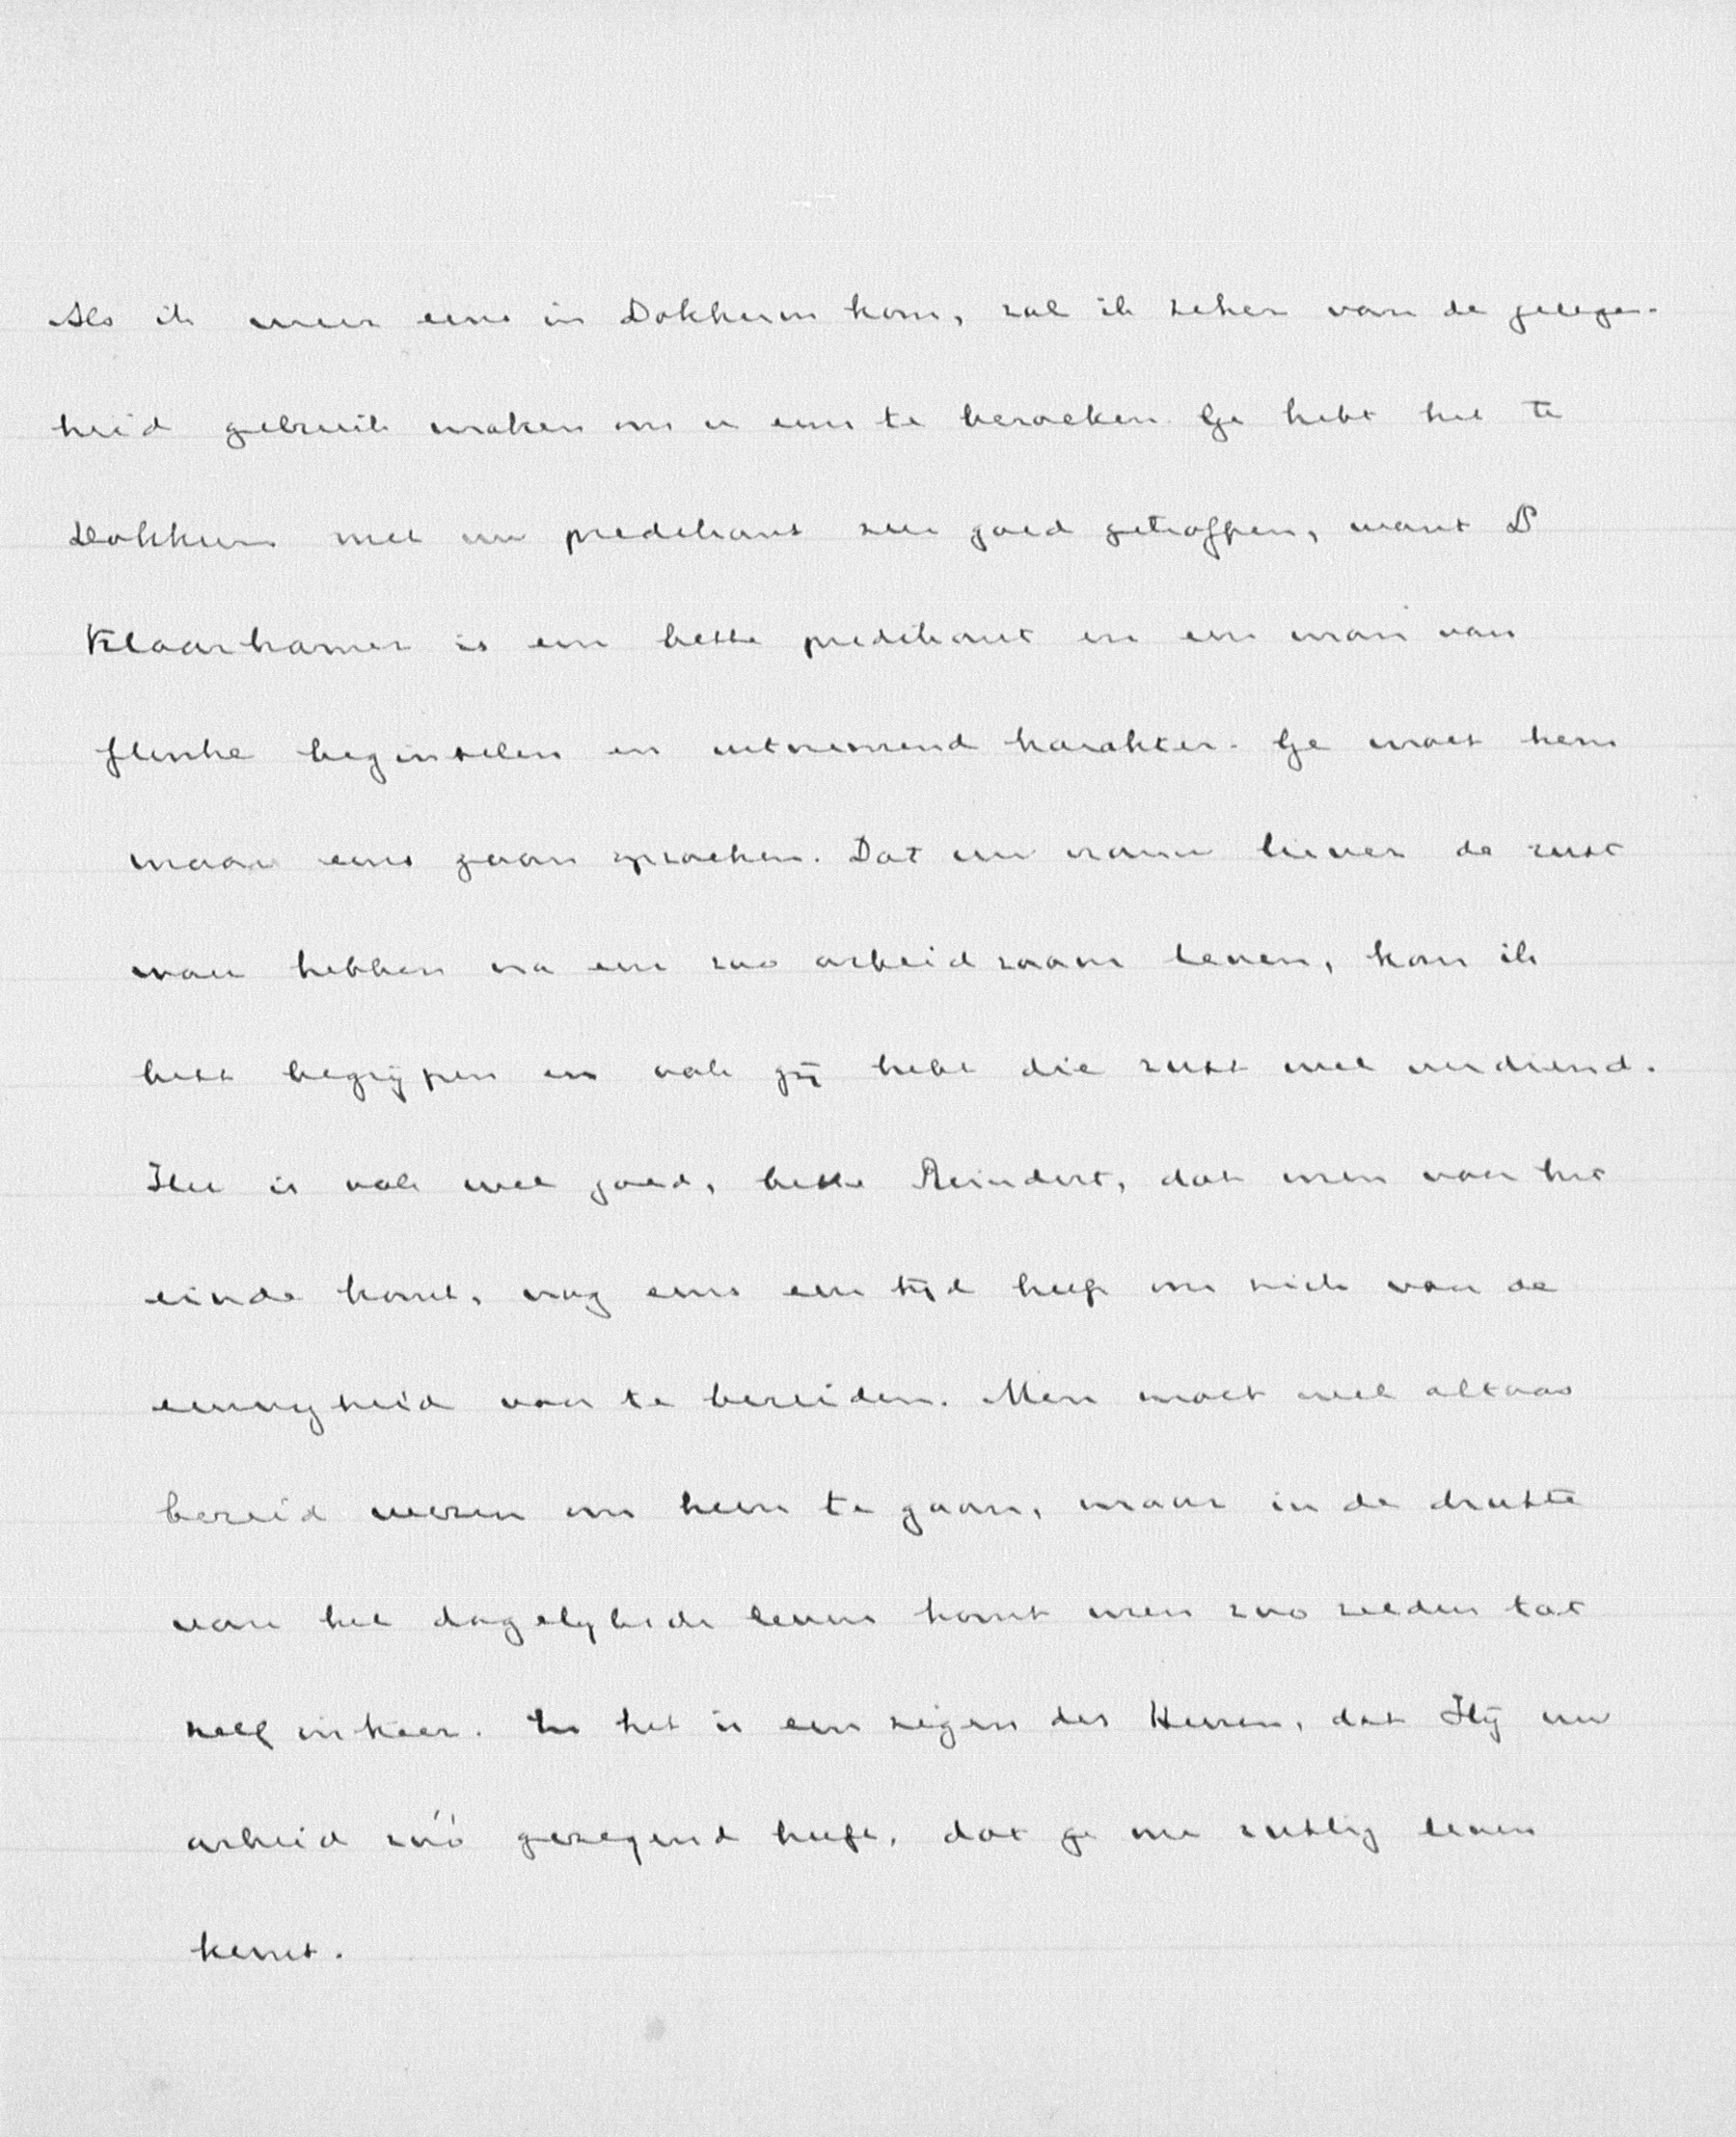 Als ik weer eens in Dokkum kom, zal ik zeker van de gelegen-
heid gebruik maken om u eens te bezoeken. Ge hebt het te
Dokkum met uw predikant zeer goed getroffen, want Ds
Klaarhamer is een beste predikant en een man van
flinke beginselen en uitnemend karakter. Ge moet hem
maar eens gaan spreken. Dat uw vrouw liever de rust
wou hebben na een zoo arbeidzaam leven, kan ik
best begrijpen en ook gij hebt die rust wel verdiend.
Het is ook wel goed, beste Reindert, dat men voor het
einde komt, nog eens een tijd heeft om zich voor de
eeuwigheid voor te bereiden. Men moet wel altoos
bereid wezen om heen te gaan, maar in de drukte
van het dagelyksche leven komt men zoo zelden tot
zelf inkeer. En het is een zegen des Heeren, dat Hij uw
arbeid zóó gezegend heeft, dat ge nu rustig leven
kunt.